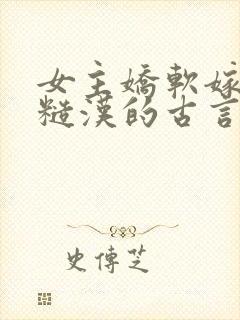 女主嬌軟嫁
糙漢的古言
史傳芝